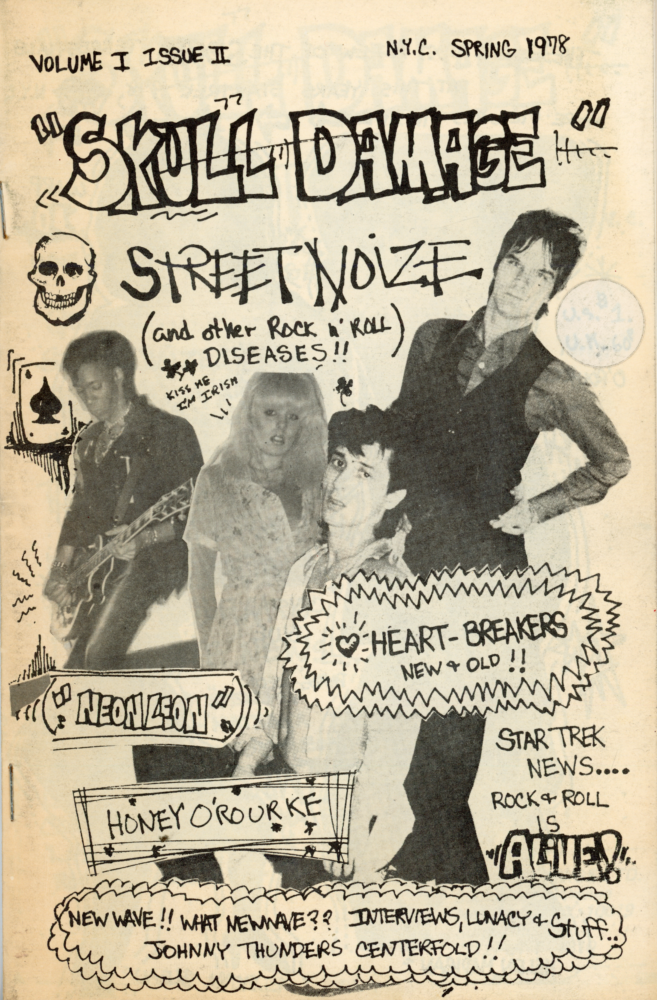 VOLUME I ISSUE II
N.Y.C. SPRING 1978
"SKULL DAMAGE"
STREET NOIZE
(and other Rock n' ROLL)
DISEASES!!
KISS ME
I'M IRISH
HEART-BREAKERS
NEW & OLD!!
"NEON LEON"
STAR TREK
NEWS....
ROCK & ROLL
IS
"ALIVE!"
HONEY O'ROURKE
NEW WAVE!! WHAT NEWWAVE?? INTERVIEWS, LUNACY & Stuff..
JOHNNY THUNDERS CENTERFOLD!!